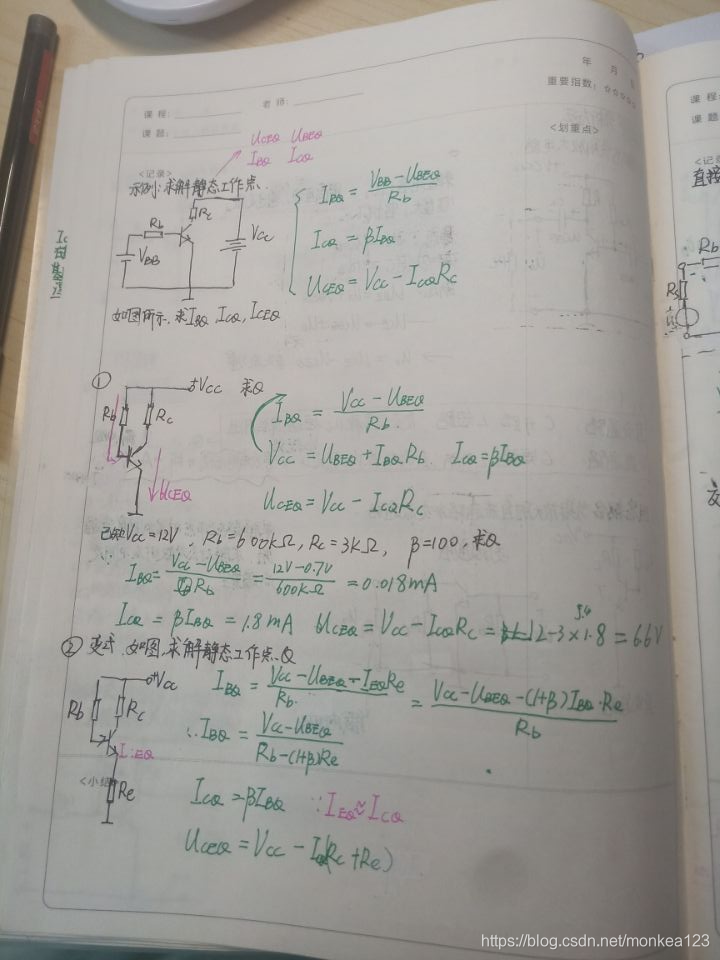 年 月
重要指数：☆☆☆☆☆
课程：
老师：
课题：
<划重点>
UCEQ UBEQ
IBQ ICQ
<记录>
示例：求解静态工作点.
Rb
Rc
VBB
VCC
IBQ = (VBB - UBEQ) / Rb
ICQ = βIBQ.
UCEQ = VCC - ICQRC
如图所示，求IBQ ICQ, ICEQ
① +VCC 求Q
Rb
Rc
UCEQ
IBQ = (VCC - UBEQ) / Rb
VCC = UBEQ + IBQRb ICQ = βIBQ
UCEQ = VCC - ICQRC
已知VCC=12V, Rb=600kΩ, RC=3kΩ, β=100, 求Q
∵ IBQ = (VCC - UBEQ) / Rb = (12V-0.7V) / 600kΩ = 0.018mA
ICQ = βIBQ = 1.8mA UCEQ = VCC - ICQRC = 12-3×1.8 = 6.6V
5.4
② 变式.如图,求解静态工作点Q
+VCC
Rb
Rc
IEQ
Re
IBQ = (VCC - UBEQ - IEQRe) / Rb. = (VCC - UBEQ - (1+β)IBQ·Re) / Rb
∴ IBQ = (VCC - UBEQ) / (Rb-(1+β)Re)
<小结>
ICQ = βIBQ ∵IEQ≈ICQ
UCEQ = VCC - ICQ(RC+Re)
课
课题
<记录
直接
Rb
Rs
https://blog.csdn.net/monkea123